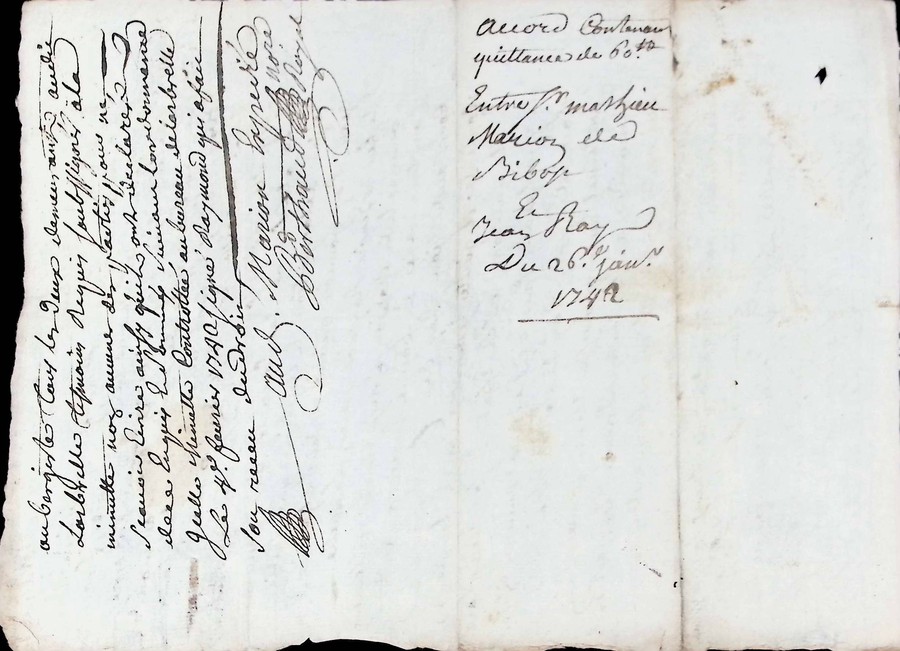 aubergiste tous les deux demeurants audit
Larbrelle temoins requis soubssignés à la
minutte non aucune des parties pour ne
scavoir Ecrire ainsy qu'ils ont declaré
de ce Enquis et sommés suivant lordonnance
quelle minutte Controllée au bureau de Larbrelle
Le 4e fevrier 1742 signé Raymond qui a fait
son receu du droit
Marion
Berthaud
Accord Contenan
quittance de 60 tt
Entre Sr. mathieu
Marion de
Bibop
Et
Jean Ray
Du 26e janr.
1742